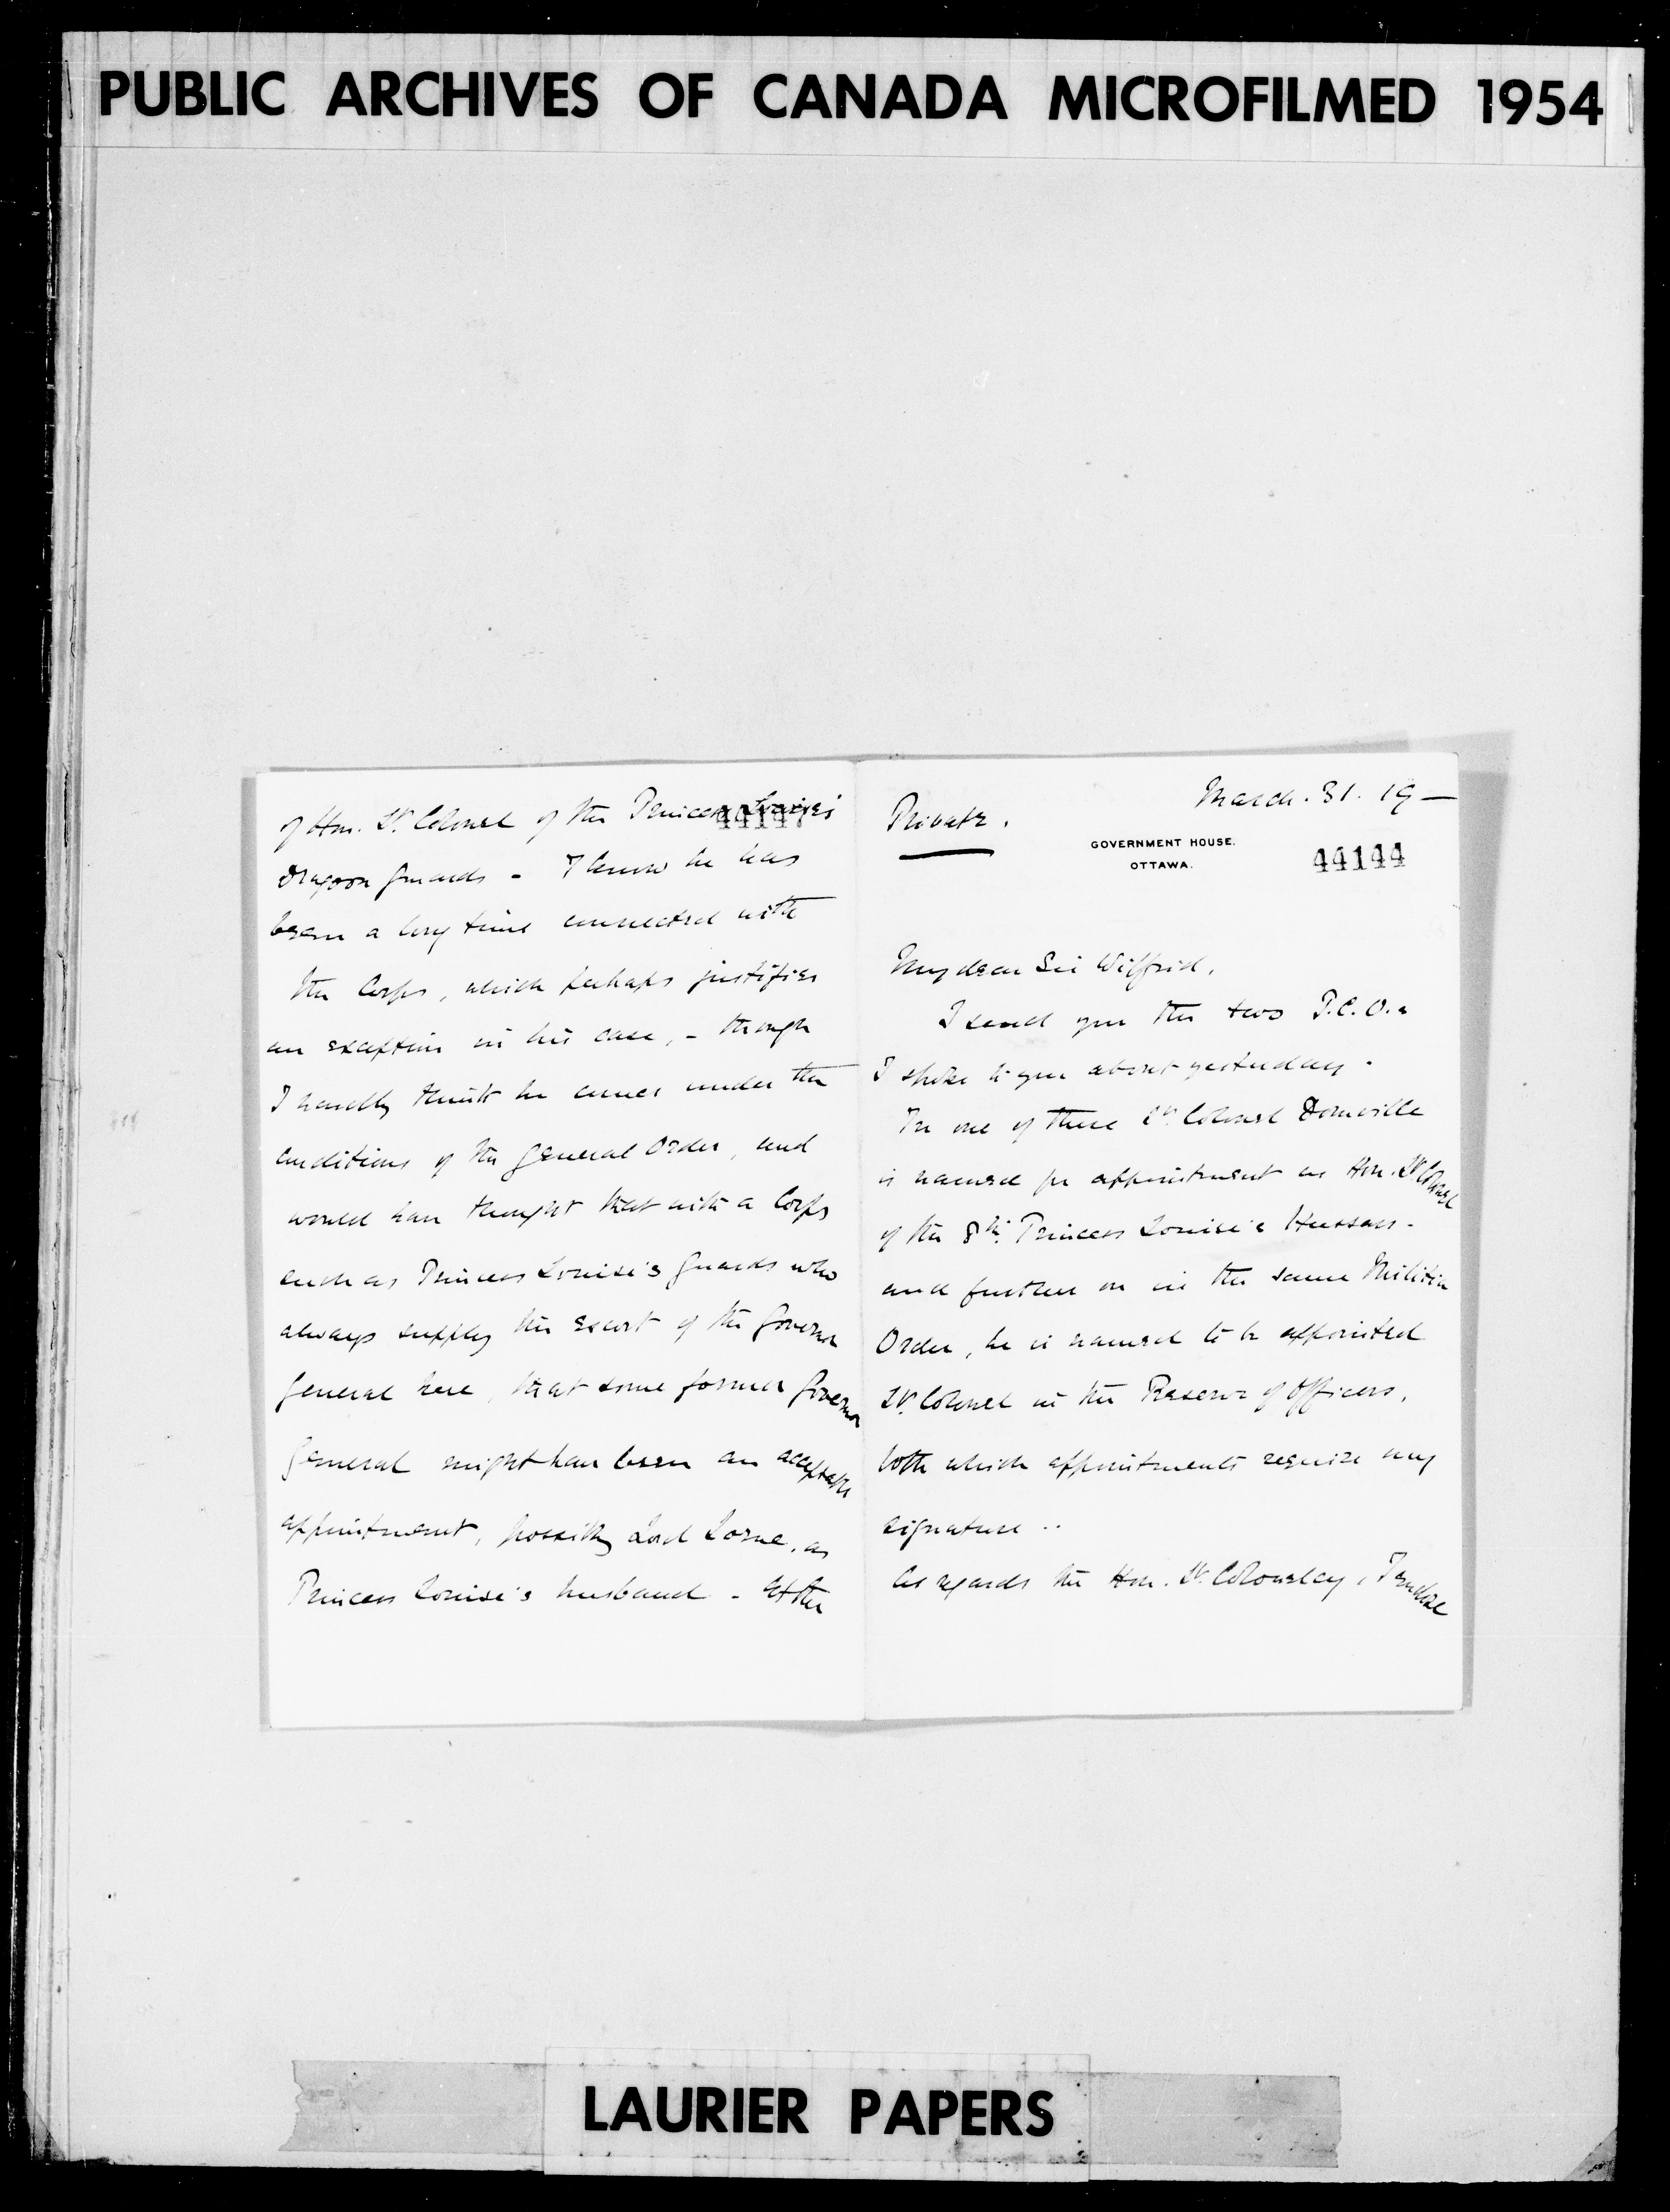 PUBLIC ARCHIVES OF CANADA MICROFILMED 1954
of Hon. Lt. Colonel of the Princess Louise's
44147
Dragoon Guards - I know he has
been a long time connected with
the Corps, which perhaps justifies
an exception in his case, - though
I hardly think he comes under the
conditions of the General Order, and
would have thought that with a Corps
such as Princess Louise's Guards who
always supply the escort of the Governor
General here, that some former Governor
General might have been an acceptable
appointment, possibly Lord Lorne, as
Princess Louise's husband - At the
March. 31. 19—
Private.
GOVERNMENT HOUSE.
OTTAWA.
44144
My dear Sir Wilfrid,
I send you the two P.C.O.s
I spoke to you about yesterday.
In one of these Lt. Colonel Domville
is named for appointment as Hon. Lt Colonel
of the 8th. Princess Louise's Hussars -
and further on in the same Militia
Order, he is named to be appointed
Lt. Colonel in the Reserve of Officers,
both which appointments require my
signature ..
As regards the Hon. Lt. Colonelcy,
LAURIER PAPERS